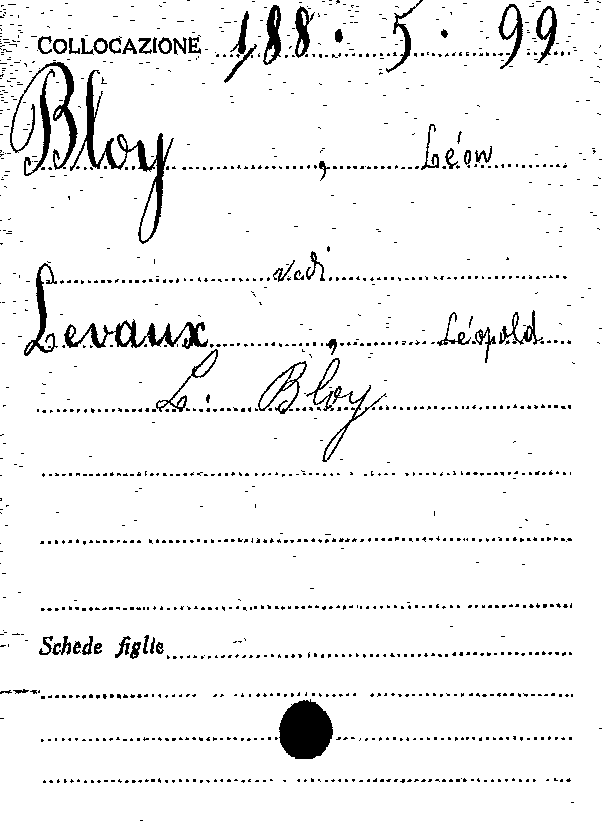 COLLOCAZIONE 188.5.99
Bloy, Léon
vedi
Levaux, Léopold
L. Bloy
Schede figlie